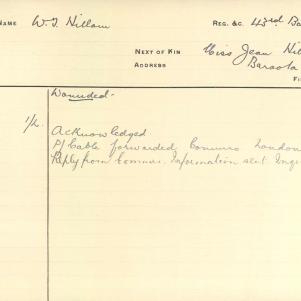 NAME W.J. Hillam REG. &C. 43rd Ba
NEXT OF KIN Miss Jean Hil
ADDRESS Baroota
FI
Wounded.
Acknowledged
P/Cable forwarded Commrs London
Reply from Commrs. Information sent